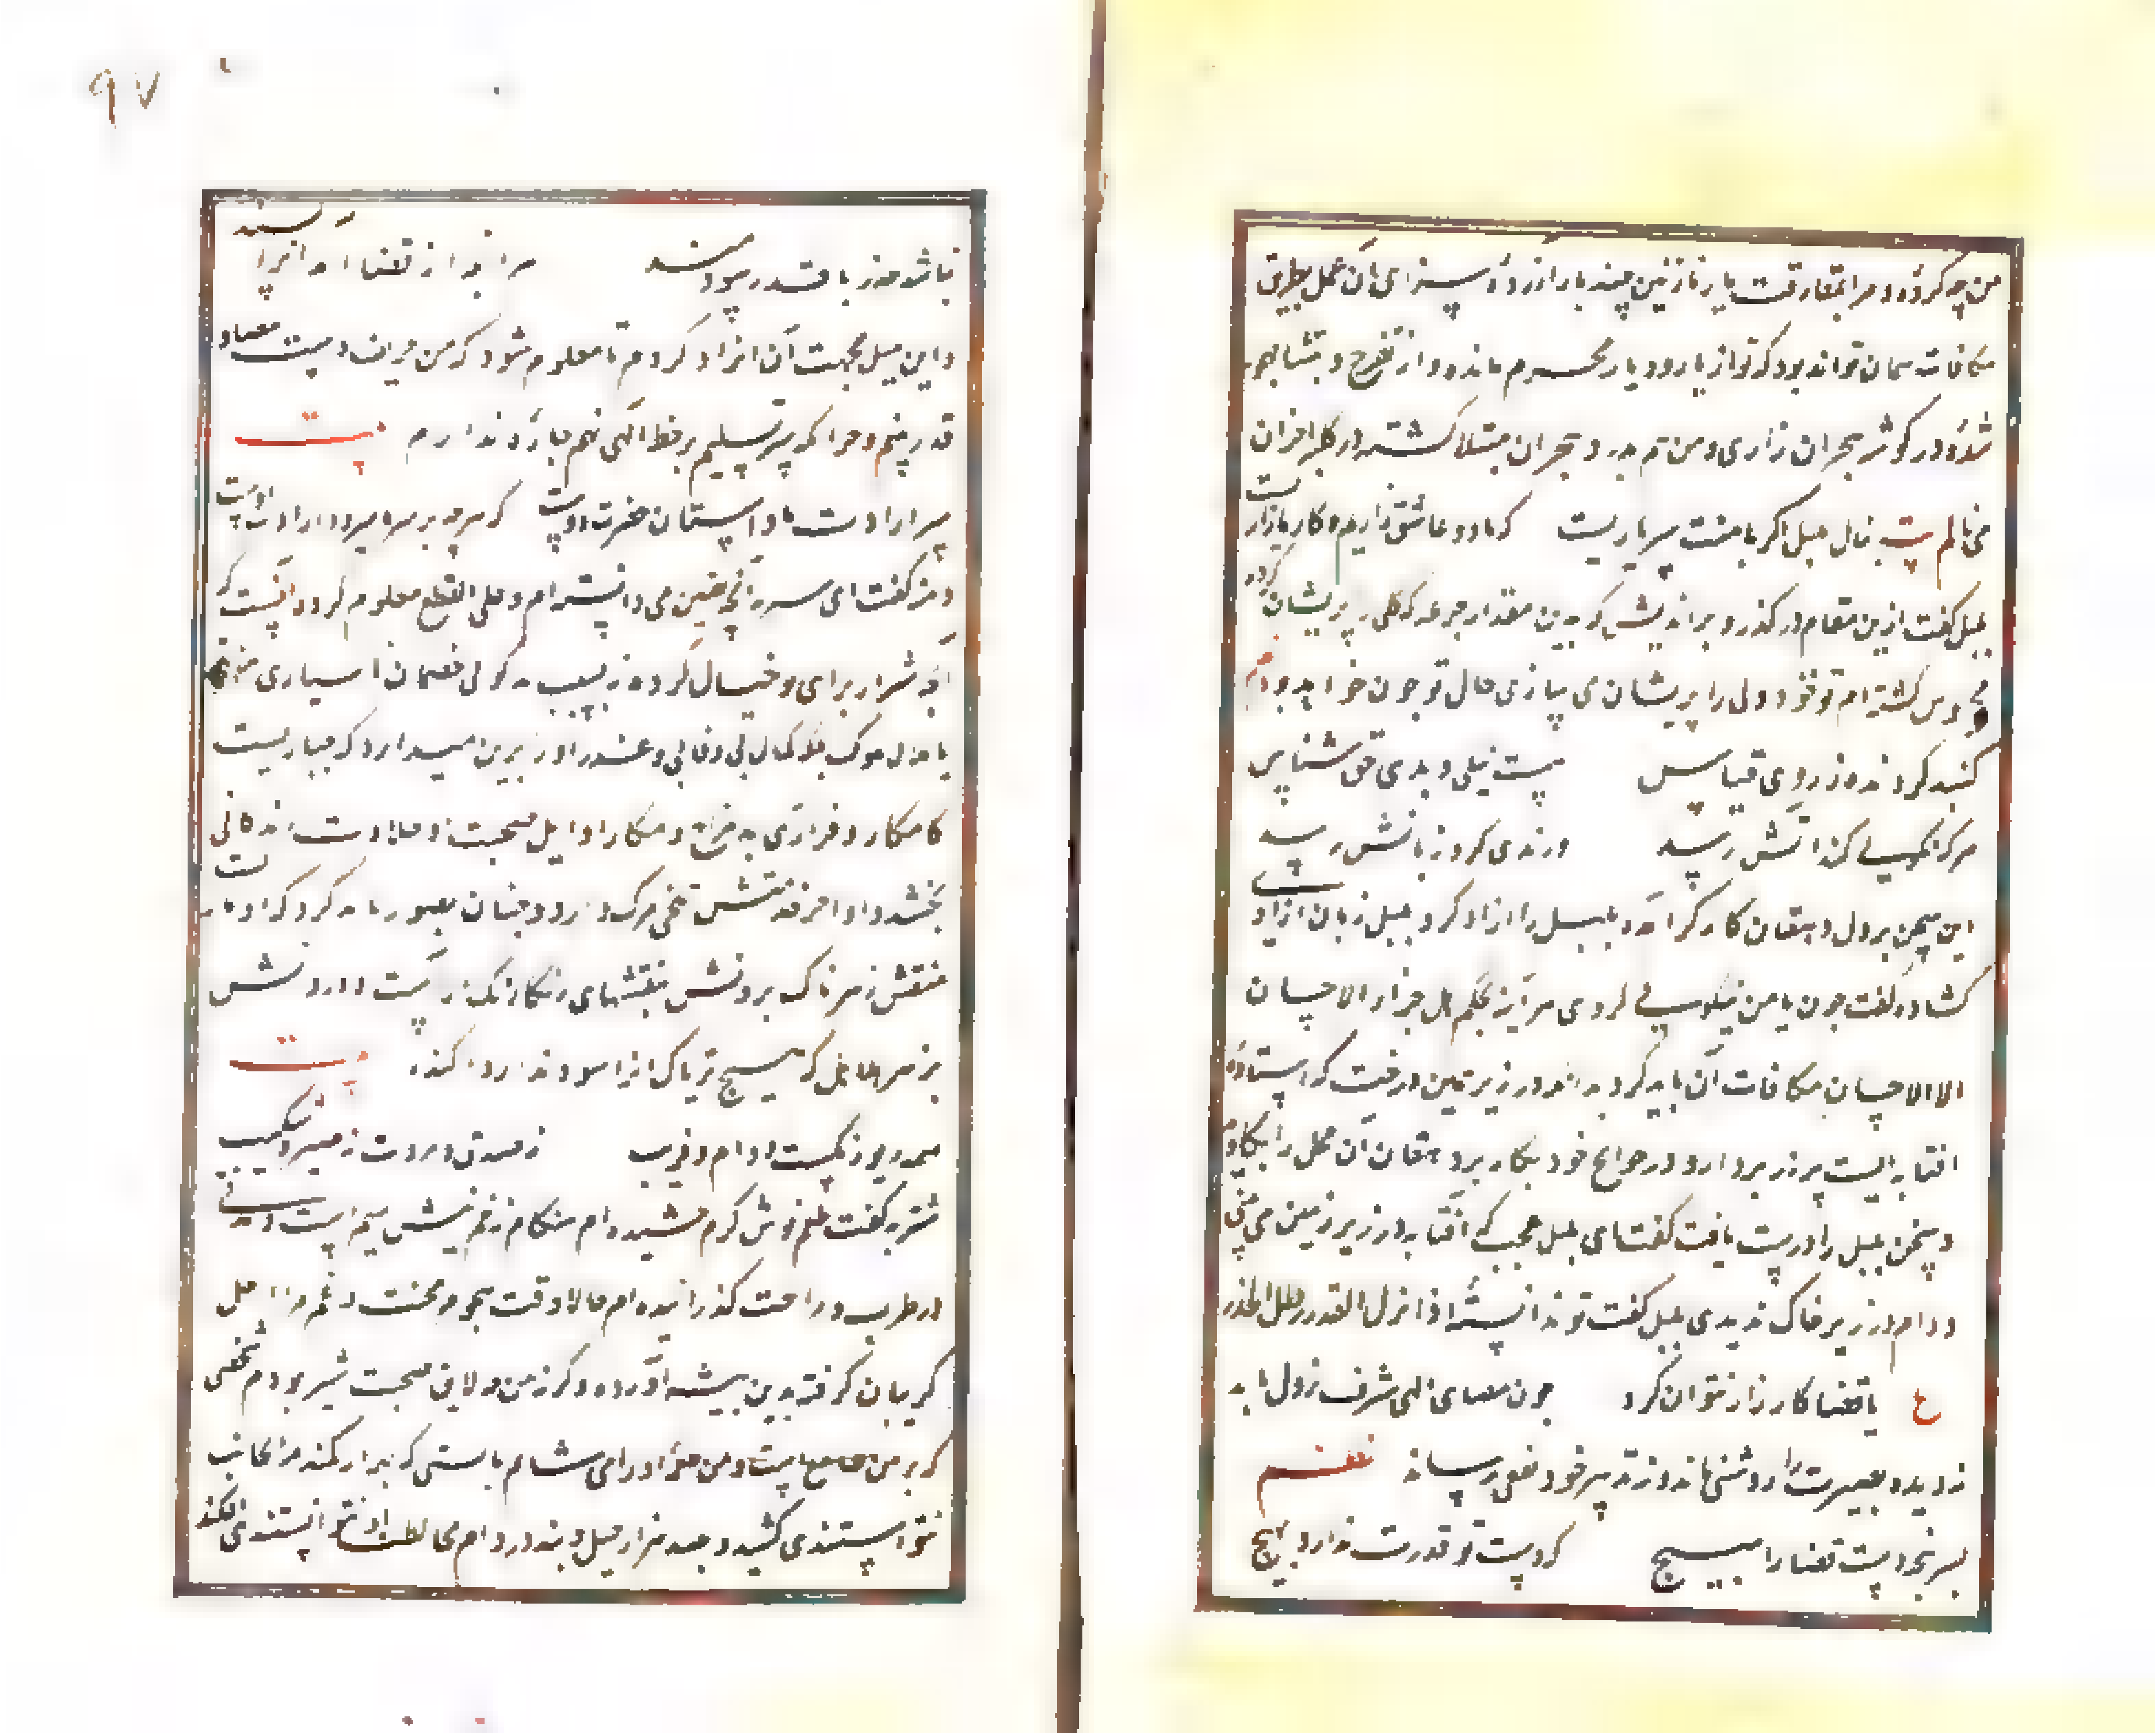 من چه کرده و مرا بمفارقت یار نازنین چند بار آزرده سزای آن عمل بطریق
مکافات همان تواند بود که تو از یار و دیار محروم مانده و از تفرج و تماشا مهجور
شده در گوشه هجران زاری و من هم بدرد هجران مبتلا گشته در کلبه احزان
می نالم بیت بنال بلبل اگر با منت سر یاریست که ما دو عاشق زاریم و کار ما زاریست
بلبل گفت ازین مقام درگذر و براندیش که بدین مقدار جرعه که گلی را پریشان کردم
محبوس گشته ام تو خود دلی را پریشان می سازی حال تو چون خواهد بود نظم
گنبد گردنده ز روی قیاس هست نیکی و بدی حق شناس
هر که نکویی کند آنش رسد ور بدی کرد زیانش رسد
این سخن بر دل دهقان کارگر آمده بلبل را آزاد کرد بلبل زبان آزادی
گشاد و گفت چون با من نیکویی کردی هر آینه بحکم هل جزاء الاحسان
الا الاحسان مکافات آن باید کرد بدانکه در زیر همین درخت که ایستاده
آفتابه ایست پر زر بردار و در حوایج خود بکار بر دهقان آن محل را بکاوید
و سخن بلبل را درست یافت گفت ای بلبل عجب که آفتابه در زیر زمین می بینی
و دام در زیر خاک ندیدی بلبل گفت تو ندانسته اذا نزل القدر بطل الحذر
ع با قضا کارزار نتوان کرد چون قضای الهی شرف نزول یابد
نه دیده بصیرت را روشنی ماند و نه تدبیر خرد نفع رساند نظم
سر پنجه دست قضا را مپیچ که دست تو قدرت ندارد بهیچ
۹۷
نباشد حذر با قدر سودمند
و این مثل بجهت آن ایراد کردم تا معلوم شود که من حریف دست قضا و
قدر نیم و جز آنکه سر تسلیم بر خط الهی نهم چاره ندارم بیت
سر ارادت ما و آستان حضرت دوست که هرچه بر سر ما میرود ارادت اوست
دمنه گفت ای شنزبه آنچه یقین می دانسته ام و علی القطع معلوم کرده آنست که
آنچه شیر از برای تو خیال کرده نه بسبب بدگویی خصمان یا بسیاری هنر تو
یا ملال ملوک بلکه کمال بی وفایی و غدر او را برین میدارد که جباریست
کامکار و غداری بد مزاج و مکار اوایل صحبت او حلاوت زندگانی
بخشد و اواخر خدمتش تلخی مرگ دارد و چنان تصور باید کرد که او ماریست
منقش زهرناک برونش بنقشهای رنگارنگ آراست و درونش
بزهر هلاهل که هیچ تریاک آنرا سود ندارد آکنده بیت
همه ریو و رنگست و دام و فریب نه صدق و مروت نه مهر و شکیب
شنزبه گفت طعم نوش کرم چشیده ام هنگام زخم نیش ستم است و مدتی
در طرب و راحت گذرانیده ام حالا وقت هجوم محنت و غم مرا اجل
گریبان گرفته بدین بیشه آورده وگرنه من چه لایق صحبت شیر بودم شخصی
که بر من طامع است و من غذا او را می شایم بایستی که بهزار کمند مرا بجانب
نتوانستندی کشید و بصد هزار حیل و بند در دام مخالطت او نتوانستندی افکند